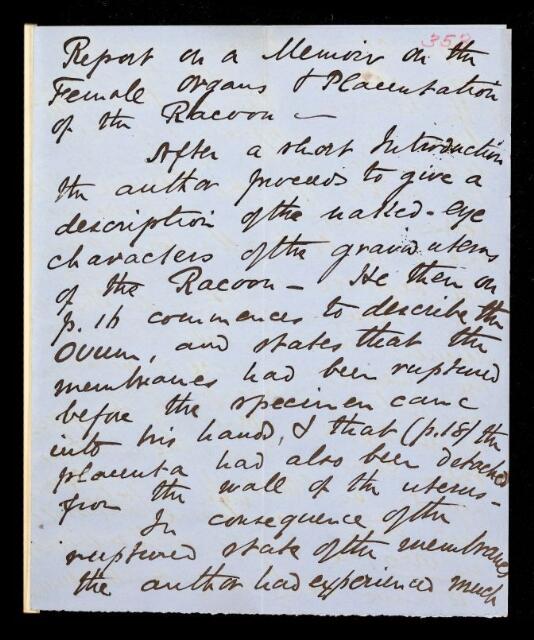 353
Report on a Memoir on the
Female Organs & Placentation
of the Racoon —
After a short Introduction
the author proceeds to give a
description of the naked-eye
characters of the gravid uterus
of the Racoon — He then on
p. 16 commences to describe the
Ovum, and states that the
membranes had been ruptured
before the specimen came
into his hands, & that (p.18) the
placenta had also been detached
from the wall of the uterus -
In consequence of the
ruptured state of the membranes
the author had experienced much